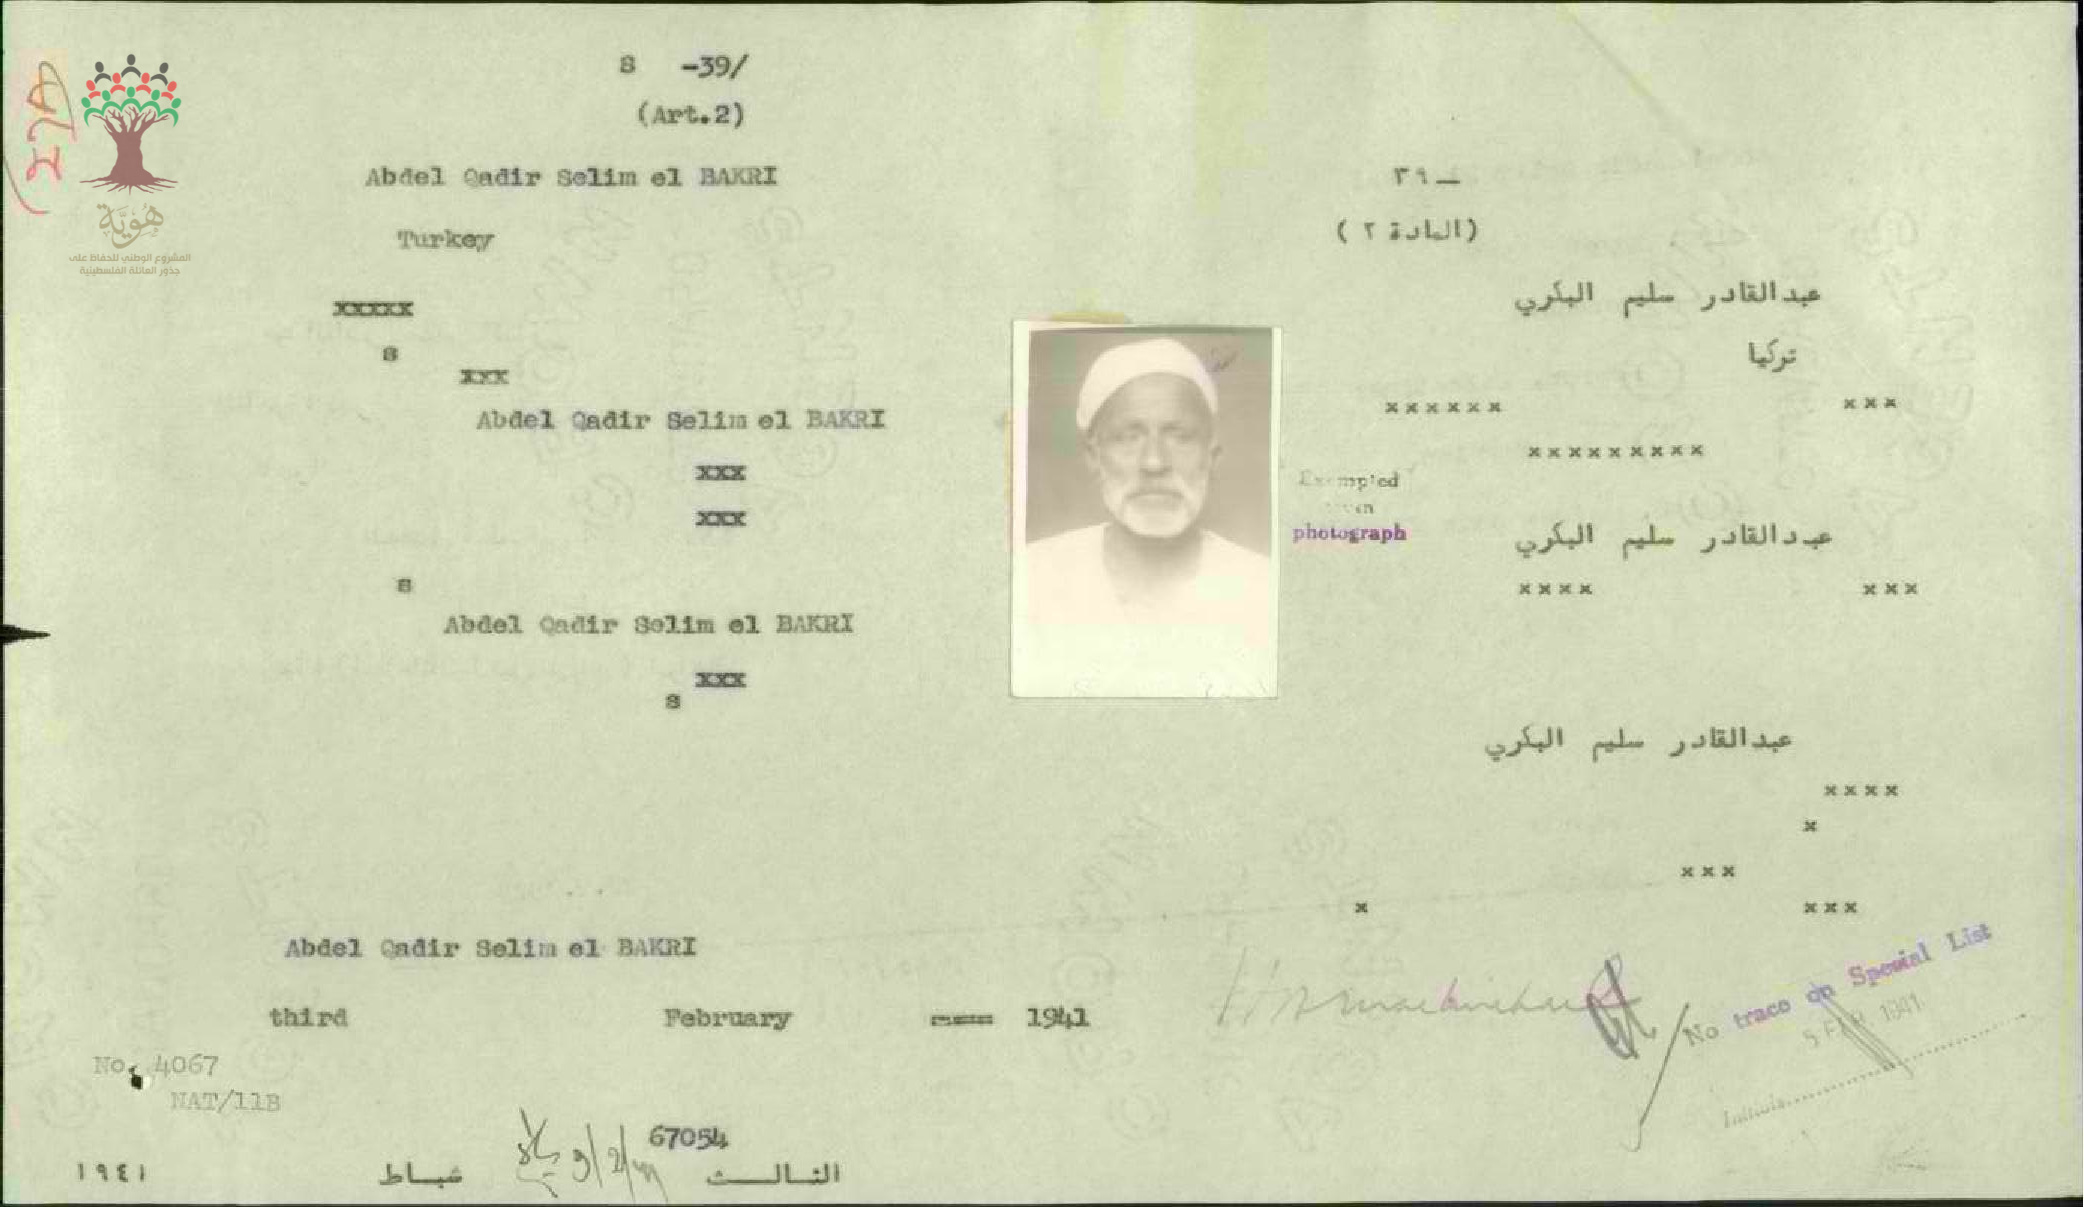 S -39/
(Art.2)
Abdel Qadir Selim el BAKRI
Turkey
xxxxx
s
xxx
Abdel Qadir Selim el BAKRI
xxx
xxx
s
Abdel Qadir Selim el BAKRI
xxx
s
Abdel Qadir Selim el BAKRI
third February 1941
No. 4067
NAT/11B
67054
١٩٤١ شباط الثالث
هُوِيَّة
المشروع الوطني للحفاظ على
جذور العائلة الفلسطينية
Exempted
photograph
٣٩ —
(المادة ٢)
عبدالقادر سليم البكري
تركيا
xxx xxxxxx
xxxxxxxxx
عبدالقادر سليم البكري
xxx xxxx
عبدالقادر سليم البكري
xxxx
x
xxx
xxx x
No trace on Special List
1941
Initials